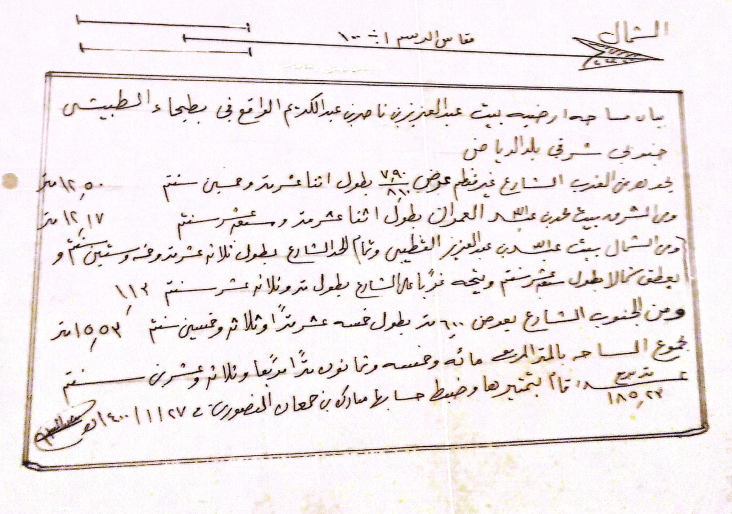 الشمال
مقاس الرسم ١ : ١٠٠
بيان مساحه ارضيه بيت عبدالعزيز بن ناصر بن عبدالكريم الواقع في بطحاء الطبيشي
جنوبي شرقي بلد الرياض
يحده من الغرب الشارع غير منظم عرض ٧,٩٠ / ٨,١٠ بطول اثنا عشر متر وخمسين سنتم ١٢,٥٠ متر
ومن الشرق بيت محمد بن عبدالله العمران بطول اثنا عشر متر وسبعة عشر سنتم ١٢,١٧ متر
ومن الشمال بيت عبدالله بن عبدالعزيز القطيبي وتمام الحد الشارع بطول ثلاثه عشر متر وخمسه وستين سنتم و
ينعطف شمالا بطول سبعة عشر سنتم ويتجه غربا على الشارع بطول متر وثلاثه عشر سنتم ١,١٣
ومن الجنوب الشارع بعرض ٦,٠٠ متر بطول خمسه عشر مترًا وثلاثه وخمسين سنتم ١٥,٥٣ متر
مجموع المساحه بالمتر المربع مائه وخمسه وثمانون مترًا مربعا وثلاثه وعشرين سنتم
١٨٥,٢٣ متر مربع قام بتمتيرها وضبط حسابها مبارك بن جمعان المنصوري في ٢٧ / ١ / ١٤٠٠